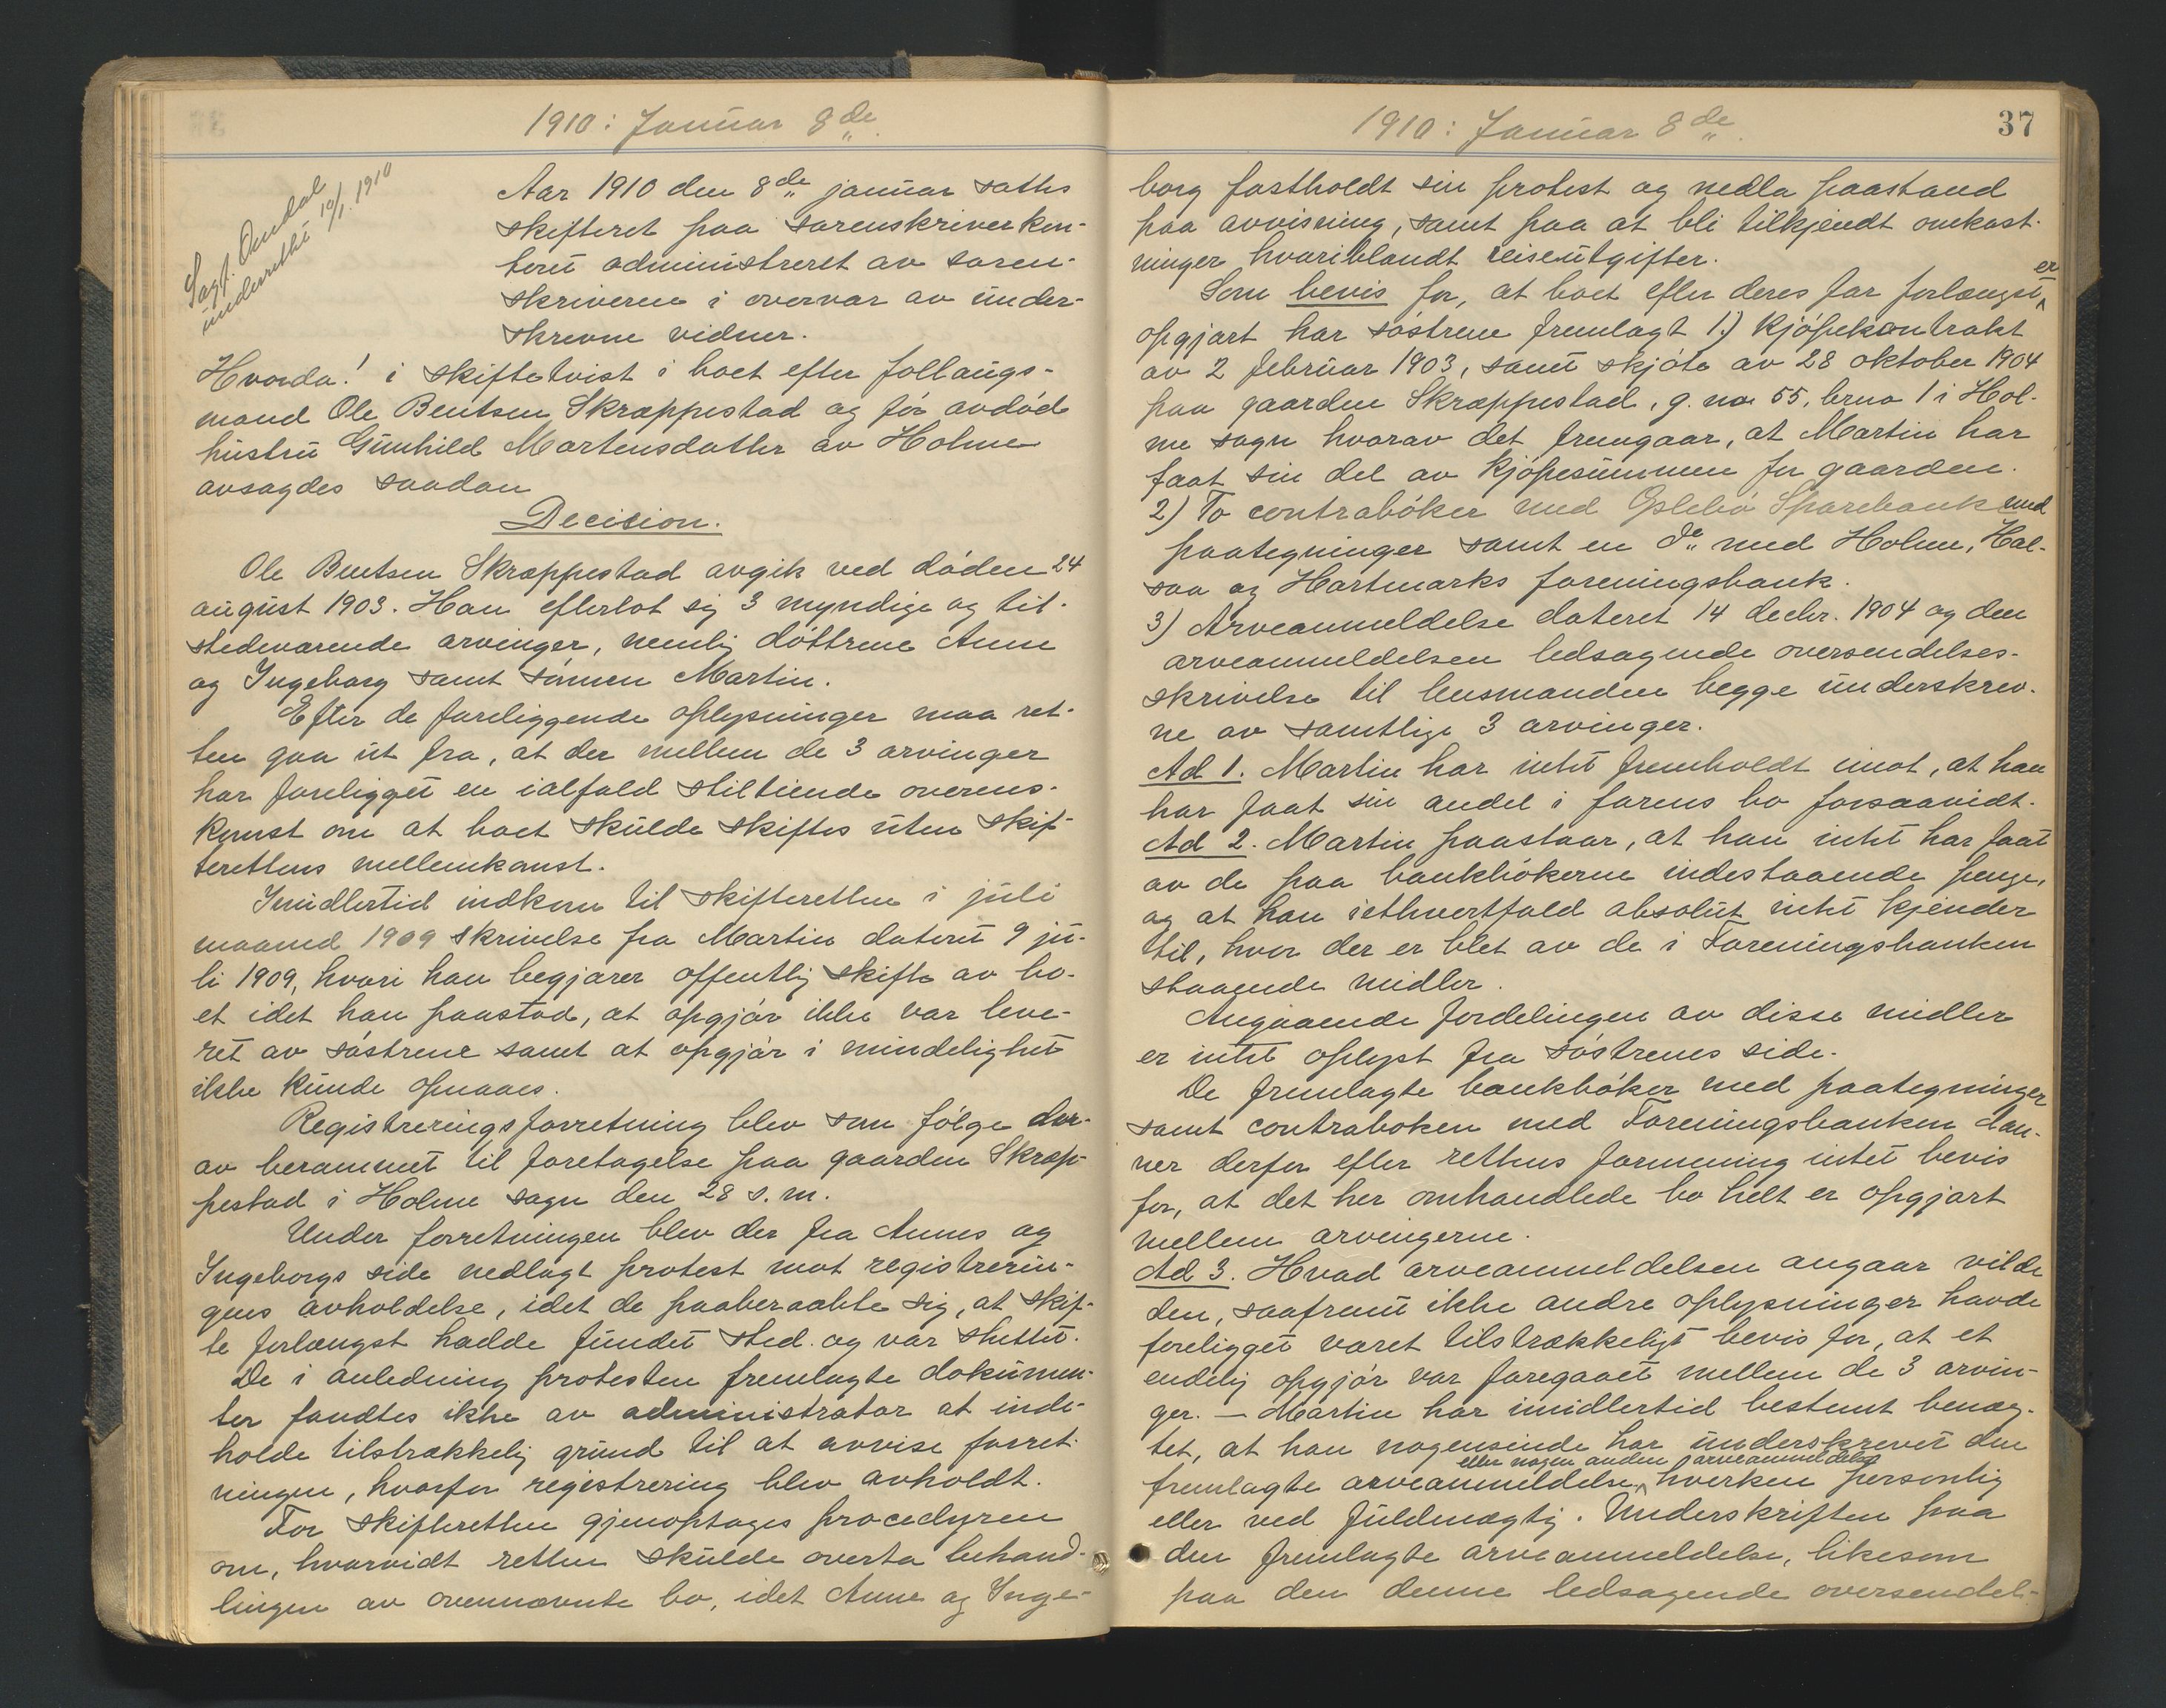 1910: Januar 8de
Sagf. Omdal
underrettet 10/1. 1910
Aar 1910 den 8de januar sattes
skifteret paa sorenskriverkon-
toret administreret av soren-
skriveren i overvær av under-
skrevne vidner.
Hvorda! i skiftetvist i boet efter follaugs-
mand Ole Bentsen Skræppestad og før avdøde
hustru Gunhild Martensdatter av Holme
avsagdes saadan
Decision.
Ole Bentsen Skræppestad avgik ved døden 24
august 1903. Han efterlot sig 3 myndige og til-
stedeværende arvinger, nemlig døttrene Anne
og Ingeborg samt sønnen Martin.
Efter de foreliggende oplysninger maa ret-
ten gaa ut fra, at der mellem de 3 arvinger
har foreligget en ialfald stiltiende overens-
komst om at boet skulde skiftes uten skif-
terettens mellemkomst.
Imidlertid indkom til skifteretten i juli
maaned 1909 skrivelse fra Martin dateret 9 ju-
li 1909, hvori han begjærer offentlig skifte av bo-
et idet han paastod, at opgjør ikke var leve-
ret av søstrene samt at opgjør i mindelighet
ikke kunde opnaaes.
Registreringsforretning blev som følge der-
av berammet til foretagelse paa gaarden Skræp-
pestad i Holme sogn den 28 s. m.
Under forretningen blev der fra Annes og
Ingeborgs side nedlagt protest mot registrerin-
gens avholdelse, idet de paaberaabte sig, at skif-
te forlængst hadde fundet sted og var sluttet.
De i anledning protesten fremlagte dokumen-
ter fandtes ikke av administrator at inde-
holde tilstrækkelig grund til at avvise forret-
ningen, hvorfor registrering blev avholdt.
For skifteretten gjenoptages procedyren
om, hvorvidt retten skulde overta behand-
lingen av ovennævnte bo, idet Anne og Inge-
1910: Januar 8de
37
borg fastholdt sin protest og nedla paastand
paa avvisning, samt paa at bli tilkjendt omkost-
ninger hvoriblandt reiseutgifter.
Som bevis for, at boet efter deres far forlængst er
opgjort har søstrene fremlagt 1.) Kjøpekontrakt
av 2 februar 1903, samt skjøte av 28 oktober 1904
paa gaarden Skræppestad, g. no 55, br no 1 i Hol-
me sogn hvorav det fremgaar, at Martin har
faat sin del av kjøpesummen for gaarden.
2) To contrabøker med Øslebø Sparebank med
paategninger samt en do med Holme, Hal-
saa og Hartmarks foreningsbank.
3) Arveanmeldelse dateret 14 decbr. 1904 og den
arveanmeldelsen ledsagende oversendelses-
skrivelse til lensmanden begge underskrev-
ne av samtlige 3 arvinger.
Ad 1. Martin har intet fremholdt imot, at han
har faat sin andel i farens bo forsaavidt.
Ad 2. Martin paastaar, at han intet har faat
av de paa bankbøkerne indestaaende penge,
og at han iethvertfald absolut intet kjender
til, hvor der er blet av de i Foreningsbanken
staaende midler.
Angaaende fordelingen av disse midler
er intet oplyst fra søstrenes side.
De fremlagte bankbøker med paategninger
samt contraboken med Foreningsbanken dan-
ner derfor efter rettens formening intet bevis
for, at det her omhandlede bo helt er opgjort
mellem arvingerne.
Ad 3. Hvad arveanmeldelsen angaar vilde
den, saafremt ikke andre oplysninger havde
foreligget været tilstrækkeligt bevis for, at et
endelig opgjør var foregaaet mellem de 3 arvin-
ger. – Martin har imidlertid bestemt benæg-
tet, at han nogensinde har underskrevet den
eller nogen anden arveanmeldelse
fremlagte arveanmeldelse, hverken personlig
eller ved fuldmægtig. Underskriften paa
den fremlagte arveanmeldelse, likesom
paa den denne ledsagende oversendel-